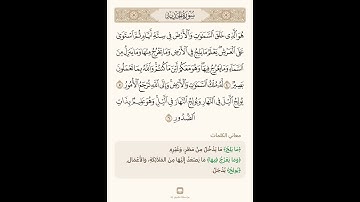 سُورَةُ الحَدِيدِ
هُوَ ٱلَّذِى خَلَقَ ٱلسَّمَـٰوَٰتِ وَٱلْأَرْضَ فِى سِتَّةِ أَيَّامٍ ثُمَّ ٱسْتَوَىٰ
عَلَى ٱلْعَرْشِ يَعْلَمُ مَا يَلِجُ فِى ٱلْأَرْضِ وَمَا يَخْرُجُ مِنْهَا وَمَا يَنزِلُ مِنَ
ٱلسَّمَآءِ وَمَا يَعْرُجُ فِيهَا وَهُوَ مَعَكُمْ أَيْنَ مَا كُنتُمْ وَٱللَّهُ بِمَا تَعْمَلُونَ
بَصِيرٌ ٤ لَّهُۥ مُلْكُ ٱلسَّمَـٰوَٰتِ وَٱلْأَرْضِ وَإِلَى ٱللَّهِ تُرْجَعُ ٱلْأُمُورُ ٥
يُولِجُ ٱلَّيْلَ فِى ٱلنَّهَارِ وَيُولِجُ ٱلنَّهَارَ فِى ٱلَّيْلِ وَهُوَ عَلِيمٌۢ بِذَاتِ
ٱلصُّدُورِ ٦
معاني الكلمات
﴿مَا يَلِجُ﴾ مَا يَدْخُلُ مِنْ مَطَرٍ، وَغَيْرِهِ.
﴿وَمَا يَعْرُجُ فِيهَا﴾ مَا يَصْعَدُ إِلَيْهَا مِنَ المَلَائِكَةِ، وَالأَعْمَالِ.
﴿يُولِجُ﴾ يُدْخِلُ.